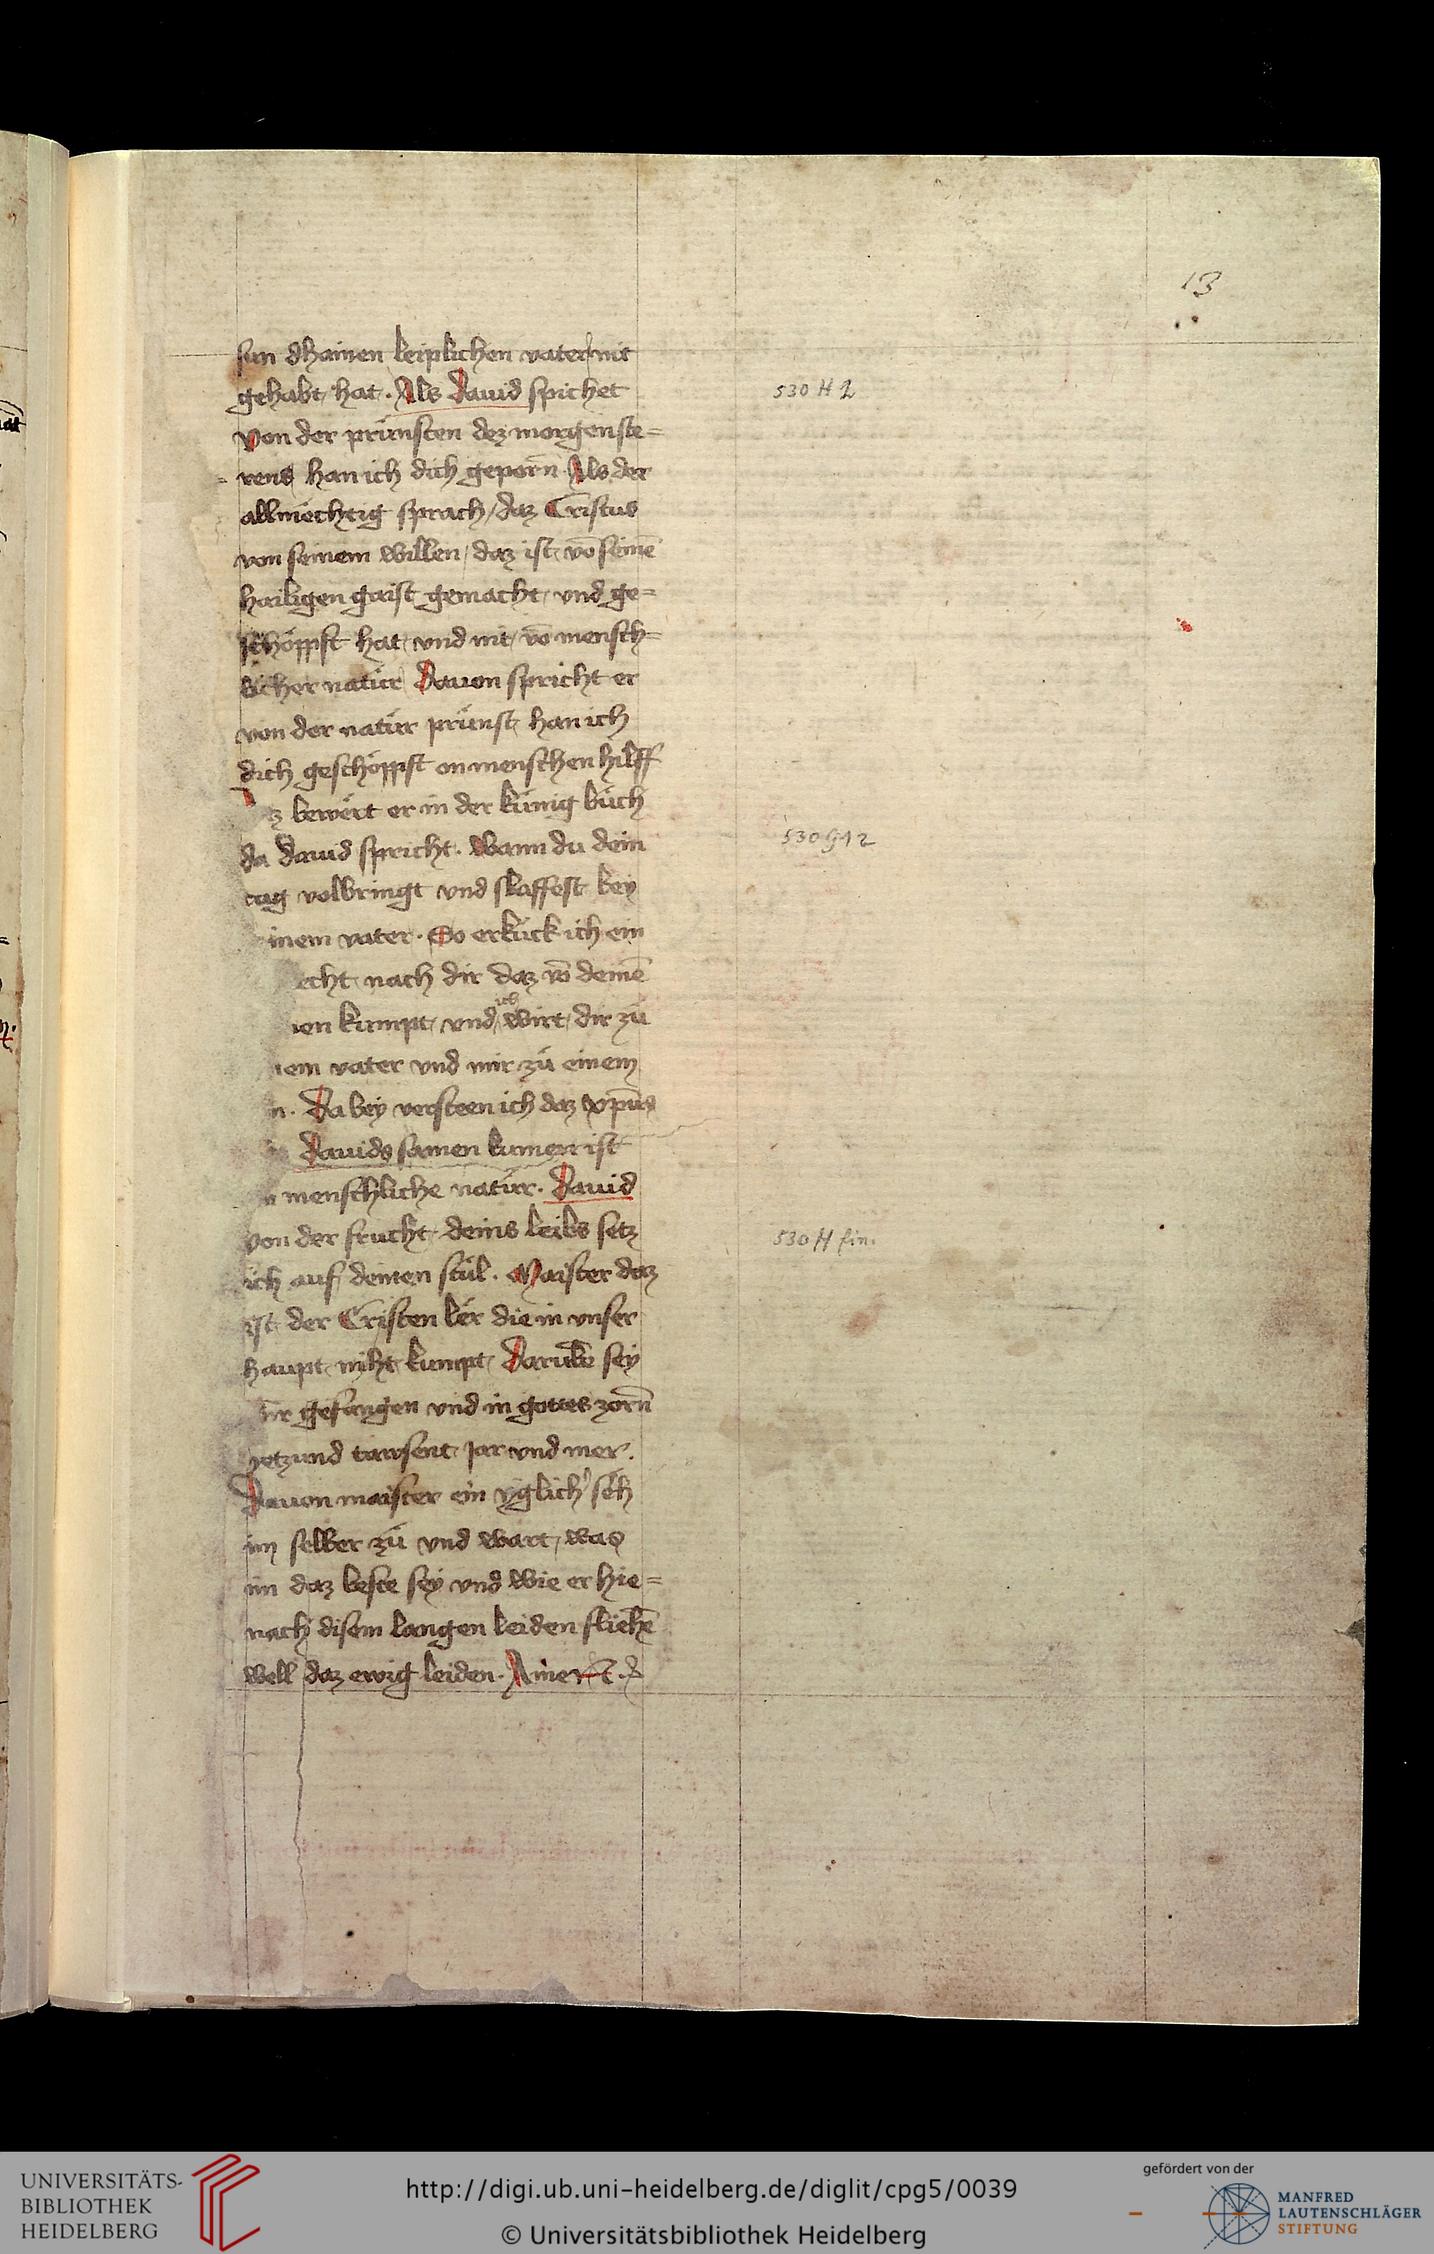 13
sun dhainen leiplichen vater nit
gehabt hat. Als dauid spichet
von der prünsten dez morgenste=
rens han ich dich geporn̄ Als der
allmëchtig sprach / daz Cristus
von seinem willen / daz ist vō seinē
hailigen gaist gemacht und ge=
schöppft hat und nit vō mensch=
licher natür Dauon spricht er
von der natür prünst han ich
dich geschöppft on menschen hilff
z bewërt er in der künig büch
da dauid spricht. Wann du dein
tag volbringt vnd slaffest bey
inem vater. So erkück ich ein
echt nach dir daz vō deinē
en kumpt / vnd ich wirt dir zü
nem vater vnd mir zü einem
n. Da bey versteen ich daz xp̄us
dauids samen kumen ist
n menschliche natür. Dauid
von der frucht deins leibs setz
ich auf deinen stül. Maister daz
ist der Cristen lër die in vnser
haupt niht kumpt / Darub̄ sey
wir gefangen vnd in gottes zorn̄
yetzund tawsent jar vnd mer.
Dauon maister ein yglich' sëh
im selber zü vnd wart, was
im daz beste sey vnd wie er hie=
nach disem langen leiden fliehē
well daz ewig leiden. Amen.
530 H 2
530 G 1 2
530 H fin.
UNIVERSITÄTS-
BIBLIOTHEK
HEIDELBERG
http://digi.ub.uni-heidelberg.de/diglit/cpg5/0039
© Universitätsbibliothek Heidelberg
gefördert von der
MANFRED
LAUTENSCHLÄGER
STIFTUNG